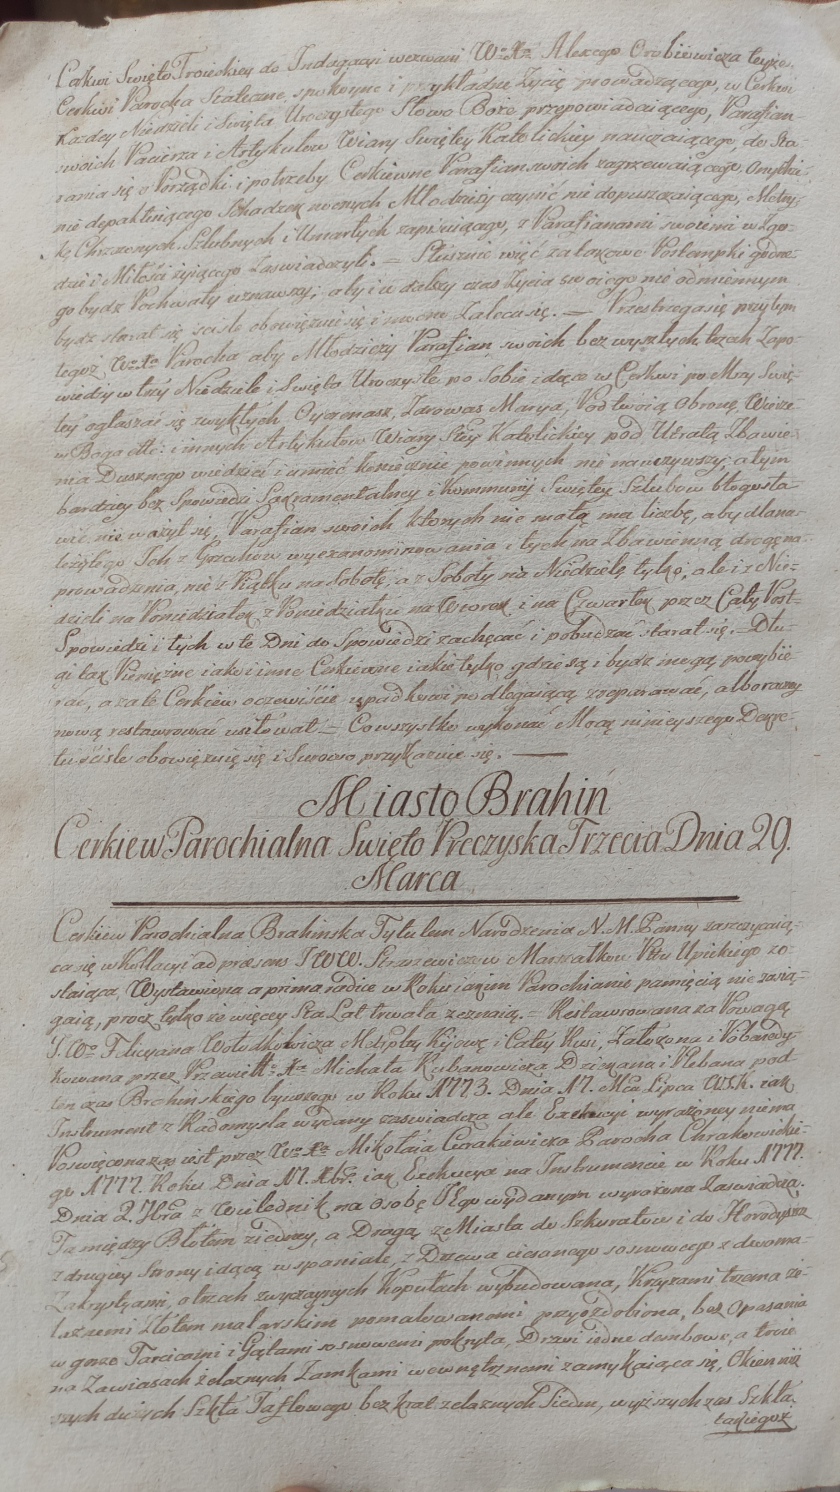 Cerkwi Swięto Troieckiey do Indagacyi wezwani Wo Xa Alexego Orobiewicza teyże
Cerkwi Parocha Stateczne, spokoyne i przykładne Zycie prowadzącego, w Cerkwi
Kazdey Niedzieli i Swięta Uroczystego Słowo Boże przepowiadaiącego, Parafian
swoich Pacierza i Artykułow Wiary Swiętey Katolickiey nauczaiącego, do Sta-
rania się o Porządki i potrzeby Cerkiewne Parafian swoich zagrzewaiącego, Omyłki
nie depaktuiącego Schadzek nocnych Młodzieży czynić nie dopuszczaiącego, Metry-
kę Chrzczonych, Szlubnych i Umarłych zapisuiącego, z Parafianami swoimi w Zgo-
dzie i Miłości żyiącego zaswiadczyli. = Słusznie więc za takowe Postempki godne-
go bydz Pochwały uznawszy; aby i w dalszy czas Zycia swoiego nie odmiennym
bydz starał się iscisle obowięzuie się i mocno Zaleca się. — Przestrzega się przytym
tegoż Wo Xa Parocha aby Młodzieży Parafian swoich bez wyszłych trzech Zapo-
wiedzy w trzy Niedziele i Swięta Uroczyste po Sobie idące w Cerkwi po Mszy Swię-
tey ogłaszać się zwykłych Oyczenasz, Zdrowas Marya, Pod twoią Obronę, Wierzę
w Boga etc: i innych Artykułow Wiary Stey Katolickiey pod Utratą Zbawie-
nia Dusznego wiedzieć i umieć koniecznie powinnych nie nauczywszy; a tym
bardziey bez Spowiedzi Sakramentalney i Kommunij Swiętey Szlubow błogosła-
wić nie ważył się, Parafian swoich ktorych nie małą ma liczbę, aby dlana-
leżytego Ich z Grzechow wyexanominowania i tych na Zbawienną drogę na-
prowadzenia, nie z Piątku na Sobotę, a z Soboty na Niedzielę tylko, ale i z Nie-
dzieli na Poniedziałek z Poniedziałku na Wtorek i na Czwartek przez Cały Post
Spowiedzi i tych w te Dni do Spowiedzi zachęcać i pobudzać starał się. = Dłu-
gi tak Pieniężne iako i inne Cerkiewne iakie tylko gdzie są i bydz mogą powybie-
rać, a za te Cerkiew oczewiście upadkowi podlegaiącą zreparować, albo razny
nową restawrować usiłował = Co wszystko wykonać Mocą ninieyszego Dekre-
tu ściśle obowięzuię się i Surowo przykazuie się. —
Miasto Brahiń
Cerkiew Parochialna Swięto Preczyska Trzecia Dnia 29.
Marca
Cerkiew Parochialna Brahinska Tytułem Narodzenia N. M. Panny zaszczycaią-
ca się w Kollacyi ad præsens JWW. Straszewiczow Marszałkow Pttu Upitskiego zo-
staiąca, Wystawiona a prima radice w Roku iakim Parochianie pamięcią nie zasią-
gaią, procz tylko że więcey Sta Lat trwała zeznaią. = Restawrowana za Powagą
J. Wo Felicyana Wołodkowicza Metrplty Kijowę i Całey Rusi, Założona i Pobenedy-
kowana przez Przewiel Xa Michała Kubanowicza Dziekana i Plebana pod
ten czas Brahinskiego bywszego w Roku 1773. Dnia 17. Mca Lipca V.S.K. iak
Instrument z Radomysla wydany zaswiadcza ale Exekucyi wyrażoney niema
Poswięcona zas iest przez Wo Xa Mikołaia Curakiewicza Parocha Chrakowickie-
go 1777. Roku Dnia 17. Xbr. iak Exekucya na Instrumencie w Roku 1777.
Dnia 2. 7bra z Wilednik na osobę JEgo wydanym wyrażona Zaswiadcza.
Ta między Błotem z iedney, a Drogą z Miasta do Szkuratow i do Horodyszcza
z drugiey Strony idącą wspaniale, z Drzewa ciosanego sosnowego z dwoma
Zakrystyami, o trzech zwyczaynych Kopułach wybudowana, Krzyżami trzema że-
laznemi Złotem malarskim pomalowanemi przyozdobiona, bez Opasania
w gorze Tarcicami i Gątami sosnowemi pokryta, Drzwi iedne dembowe, a troie
na Zawiasach żelaznych Zamkami wewnętrznemi zamykaiąca się, Okien niż
szych dużych Szkła Taflowego bez krat żelaznych Siedm, wyższych zas Szkła
takiegoż